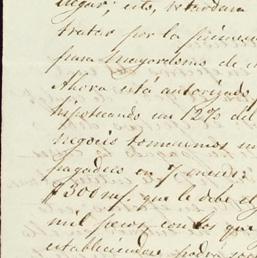 llegar; esto, retardara
tratar por la primera
para mayordomo de
Ahora está autorizado
hipotecando un 12% del
negocio tomaremos
pagadero en 7 meses:
$300 mf. que le debe el
mil pesos con los que
estableciendose podrá